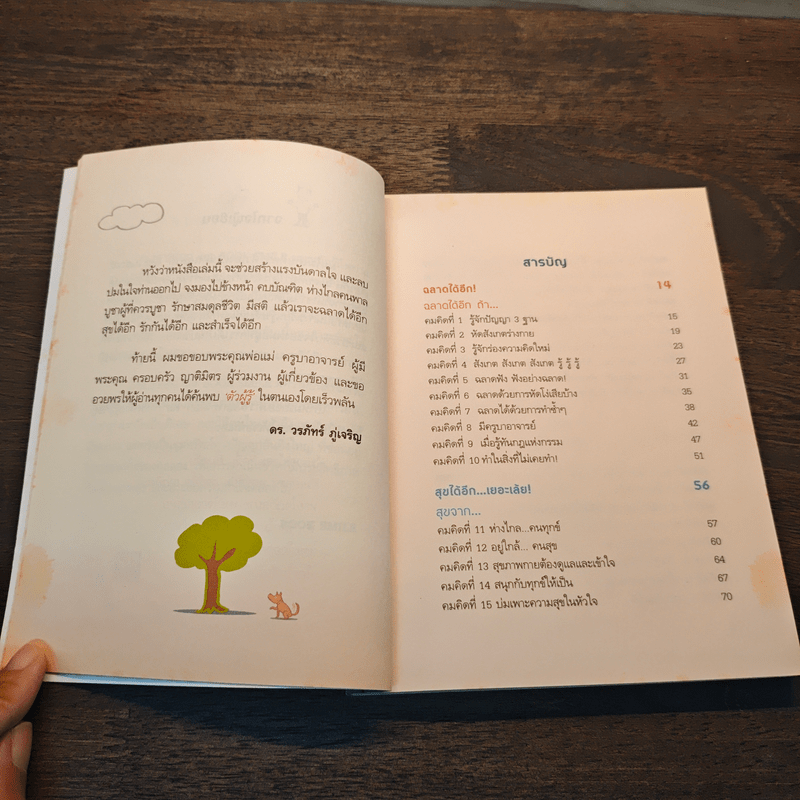 หวังว่าหนังสือเล่มนี้ จะช่วยสร้างแรงบันดาลใจ และลบ
ปมในใจท่านออกไป จงมองไปข้างหน้า คบบัณฑิต ห่างไกลคนพาล
บูชาผู้ที่ควรบูชา รักษาสมดุลชีวิต มีสติ แล้วเราจะฉลาดได้อีก
สุขได้อีก รักกันได้อีก และสำเร็จได้อีก
ท้ายนี้ ผมขอขอบพระคุณพ่อแม่ ครูบาอาจารย์ ผู้มี
พระคุณ ครอบครัว ญาติมิตร ผู้ร่วมงาน ผู้เกี่ยวข้อง และขอ
อวยพรให้ผู้อ่านทุกคนได้ค้นพบ 'ตัวผู้รู้' ในตนเองโดยเร็วพลัน
ดร. วรภัทร์ ภู่เจริญ
สารบัญ
ฉลาดได้อีก! 14
ฉลาดได้อีก ถ้า...
คมคิดที่ 1 รู้จักปัญญา 3 ฐาน 15
คมคิดที่ 2 หัดสังเกตร่างกาย 19
คมคิดที่ 3 รู้จักร่องความคิดใหม่ 23
คมคิดที่ 4 สังเกต สังเกต สังเกต รู้ รู้ รู้ 27
คมคิดที่ 5 ฉลาดฟัง ฟังอย่างฉลาด! 31
คมคิดที่ 6 ฉลาดด้วยการหัดโง่เสียบ้าง 35
คมคิดที่ 7 ฉลาดได้ด้วยการทำซ้ำๆ 38
คมคิดที่ 8 มีครูบาอาจารย์ 42
คมคิดที่ 9 เมื่อรู้ทันกฎแห่งกรรม 47
คมคิดที่ 10 ทำในสิ่งที่ไม่เคยทำ! 51
สุขได้อีก...เยอะเล้ย! 56
สุขจาก...
คมคิดที่ 11 ห่างไกล...คนทุกข์ 57
คมคิดที่ 12 อยู่ใกล้... คนสุข 60
คมคิดที่ 13 สุขภาพกายต้องดูแลและเข้าใจ 64
คมคิดที่ 14 สนุกกับทุกข์ให้เป็น 67
คมคิดที่ 15 บ่มเพาะความสุขในหัวใจ 70